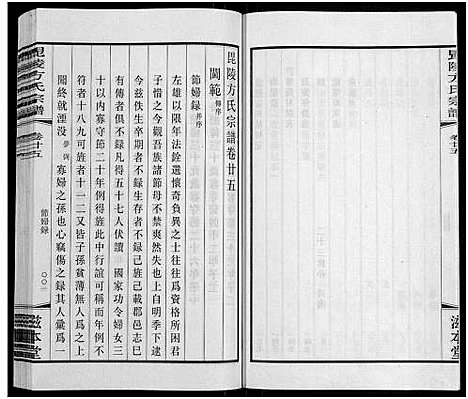 毘陵方氏宗譜
卷廿五
滋本堂
毘陵方氏宗譜卷廿五
閫範 傳序
節婦録 并序
左雄以限年法銓選懷奇負異之士往往爲資格所困君
子惜之今觀吾族諸節母不禁爽然矣上自明季下逮
今兹佚生卒期者不録生存者不録已旌已載郡邑志已
有傳者俱不録凡得五十七人伏讀 國家功令婦女三
十以内寡守節二十年例得旌此中行誼可稱而年例不
符者十八九可旌者十一二又皆子孫貧薄無人爲之上
聞終就湮没 寡婦之孫也心竊傷之其人彙爲一
毘陵方氏宗譜
卷廿五
節婦録
〇〇一
滋本堂